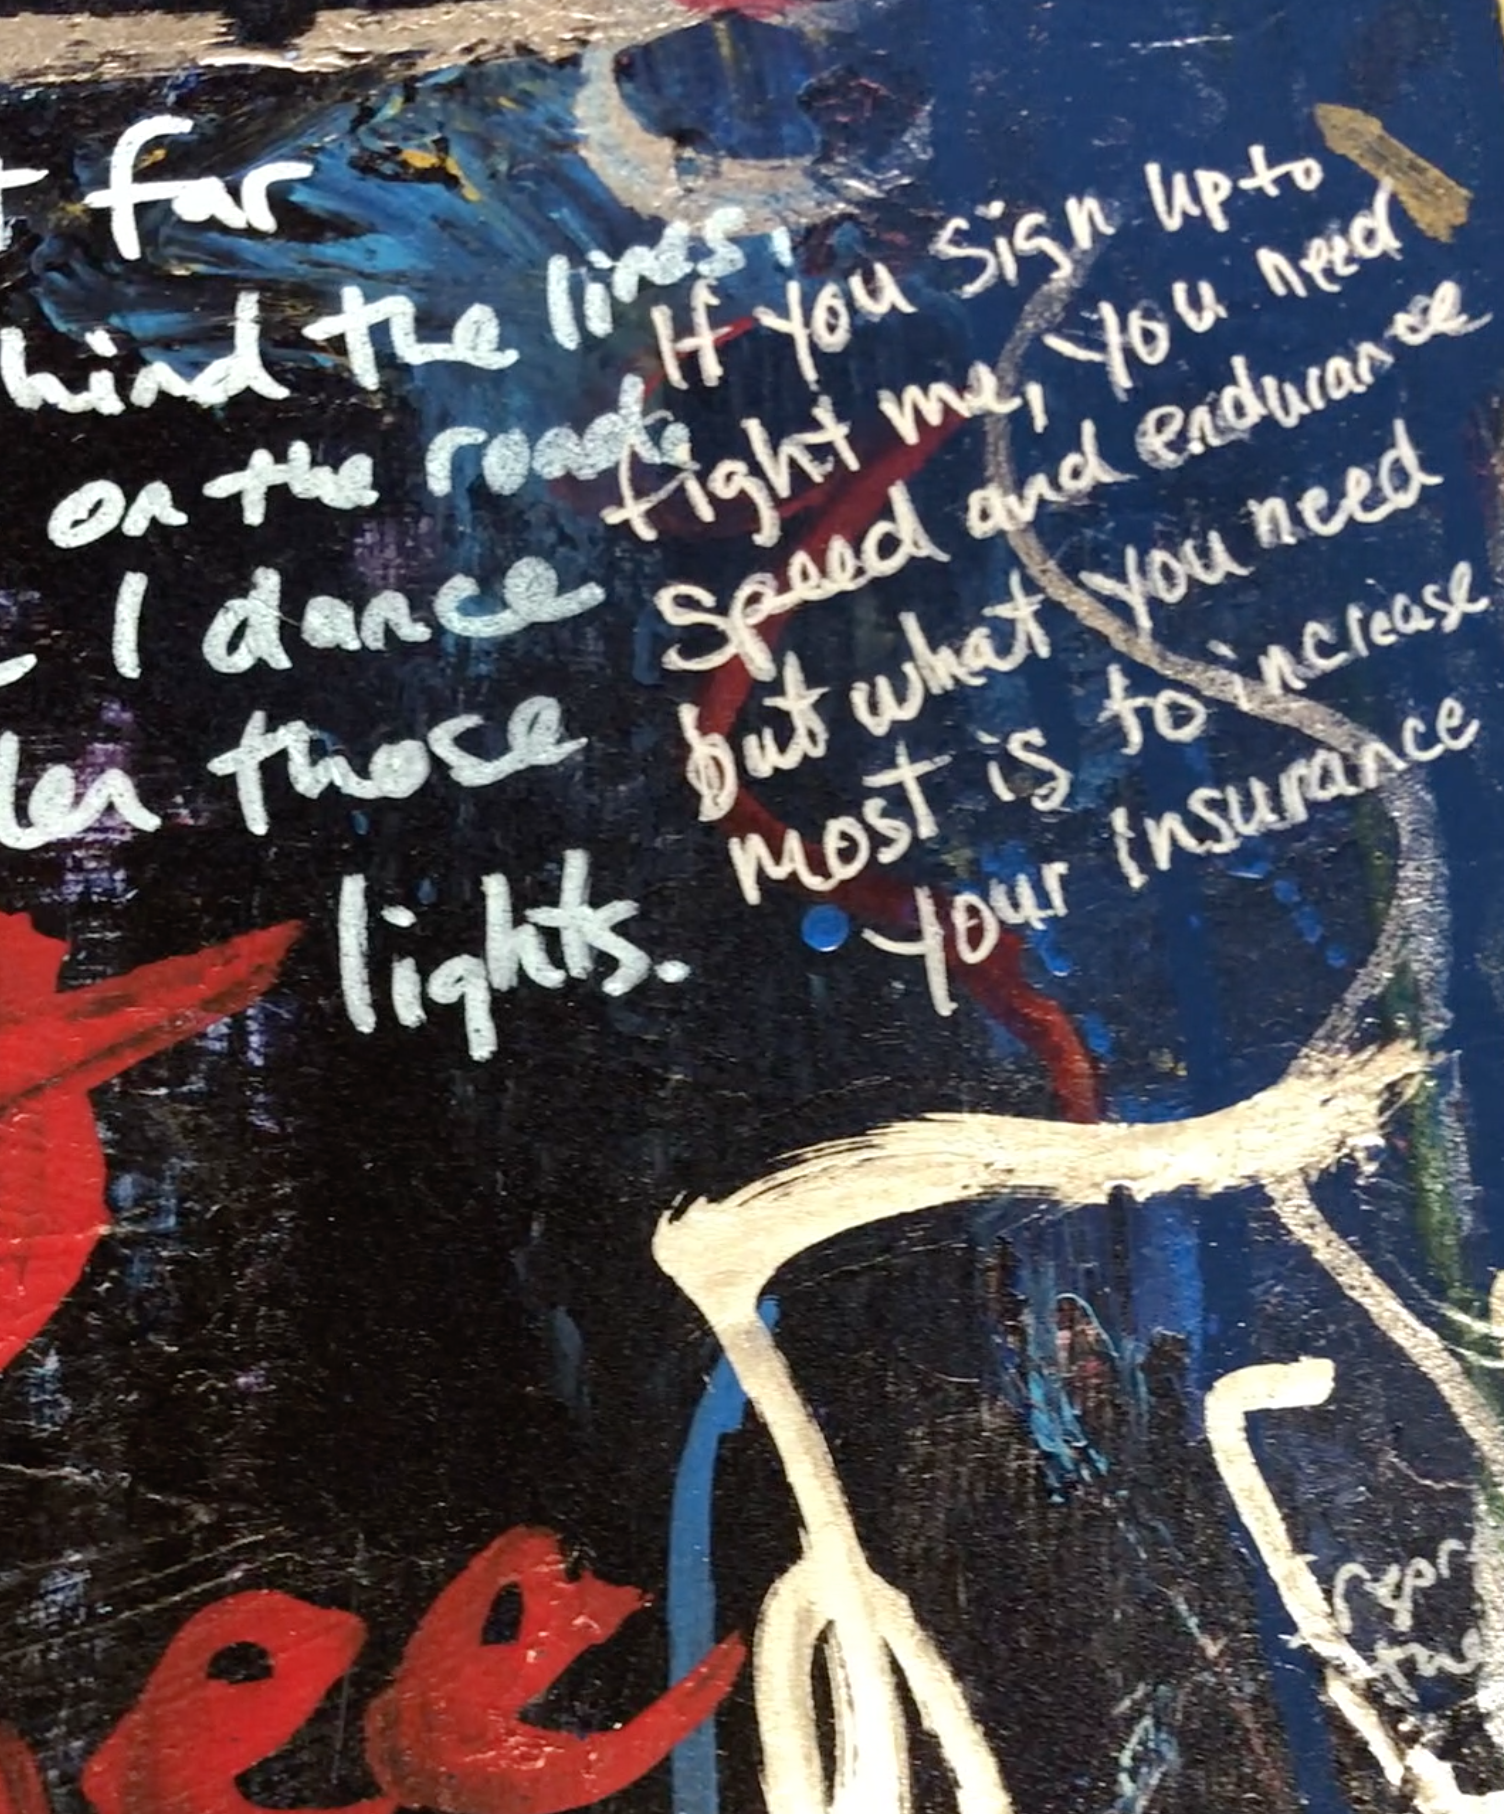 far
hind the lines,
on the road
I dance
those
lights.
If you sign up to
fight me, you need
speed and endurance
but what you need
most is to increase
your insurance
ee
repr
the